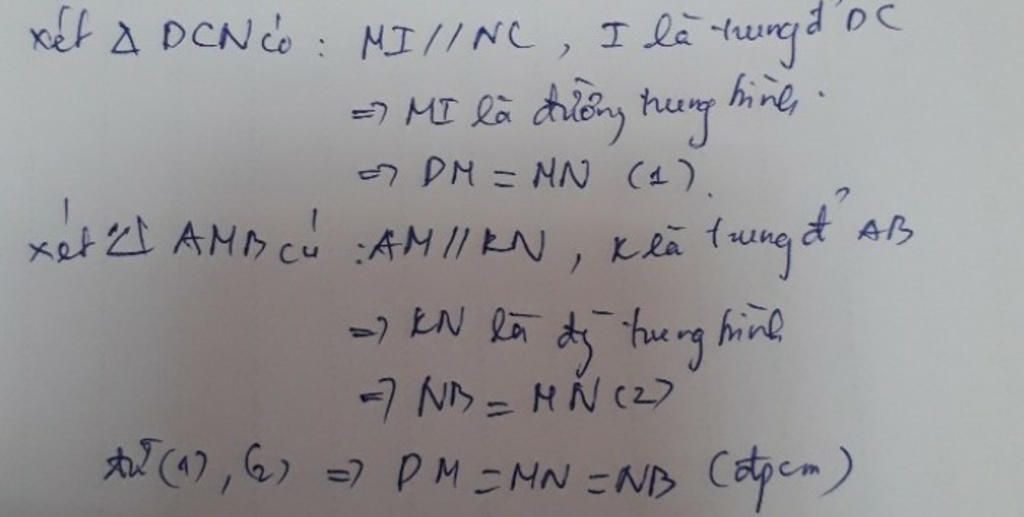 xét Δ DCN có : MI//NC, I là trung đ' DC
=> MI là đường trung bình.
=> DM = MN (1).
xét Δ AMB có : AM//KN, K là trung đ' AB
=> KN là đg trung bình
=> NB = MN (2)
từ (1), (2) => DM = MN = NB (đpcm)